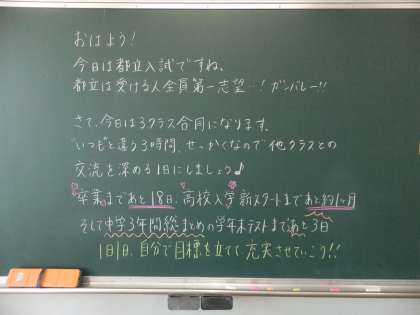 おはよう！
今日は都立入試ですね。
都立は受ける人全員第一志望…！ガンバレー!!
さて、今日は3クラス合同になります。
いつもと違う3時間、せっかくなので他クラスとの
交流を深める1日にしましょう♪
卒業まであと18日、高校入学新スタートまであと約1ヶ月
そして中学3年間総まとめの学年末テストまであと3日
1日1日、自分で目標を立てて、充実させていこう!!